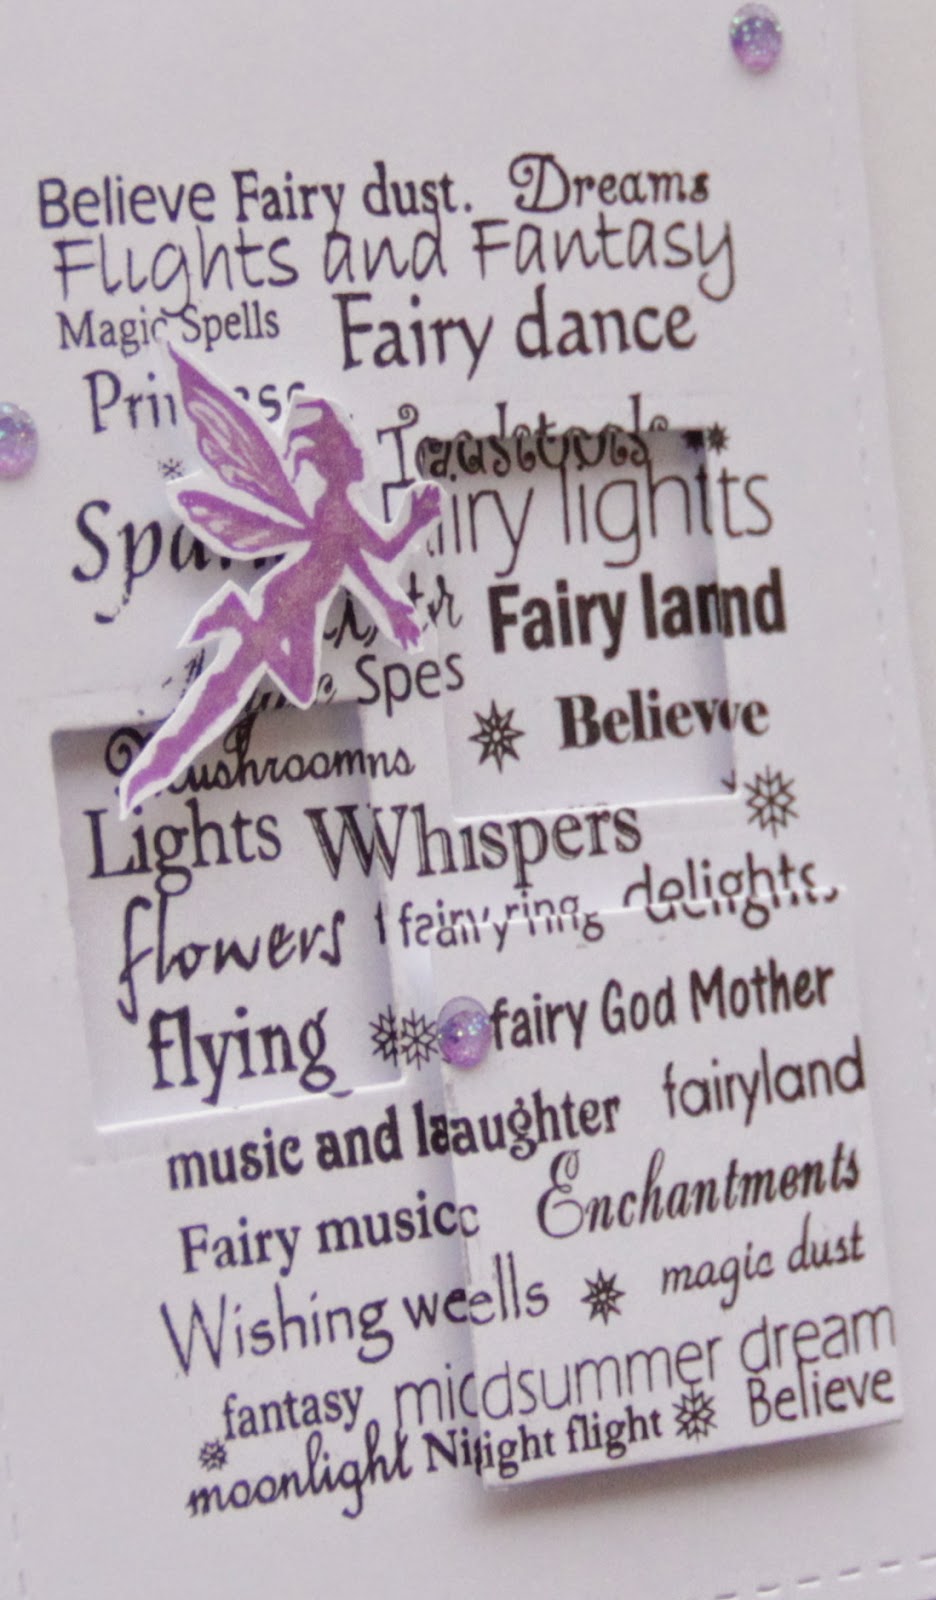 Believe Fairy dust. Dreams
Flights and Fantasy
Magic Spells Fairy dance
Toadstools
Fairy lights
Fairy land
Spes
Believe
Mushroomns
Lights Whispers
flowers fairy ring delights
flying fairy God Mother
fairyland
music and laaughter
Fairy music Enchantments
Wishing wells magic dust
fantasy midsummer dream
moonlight Night flight Believe